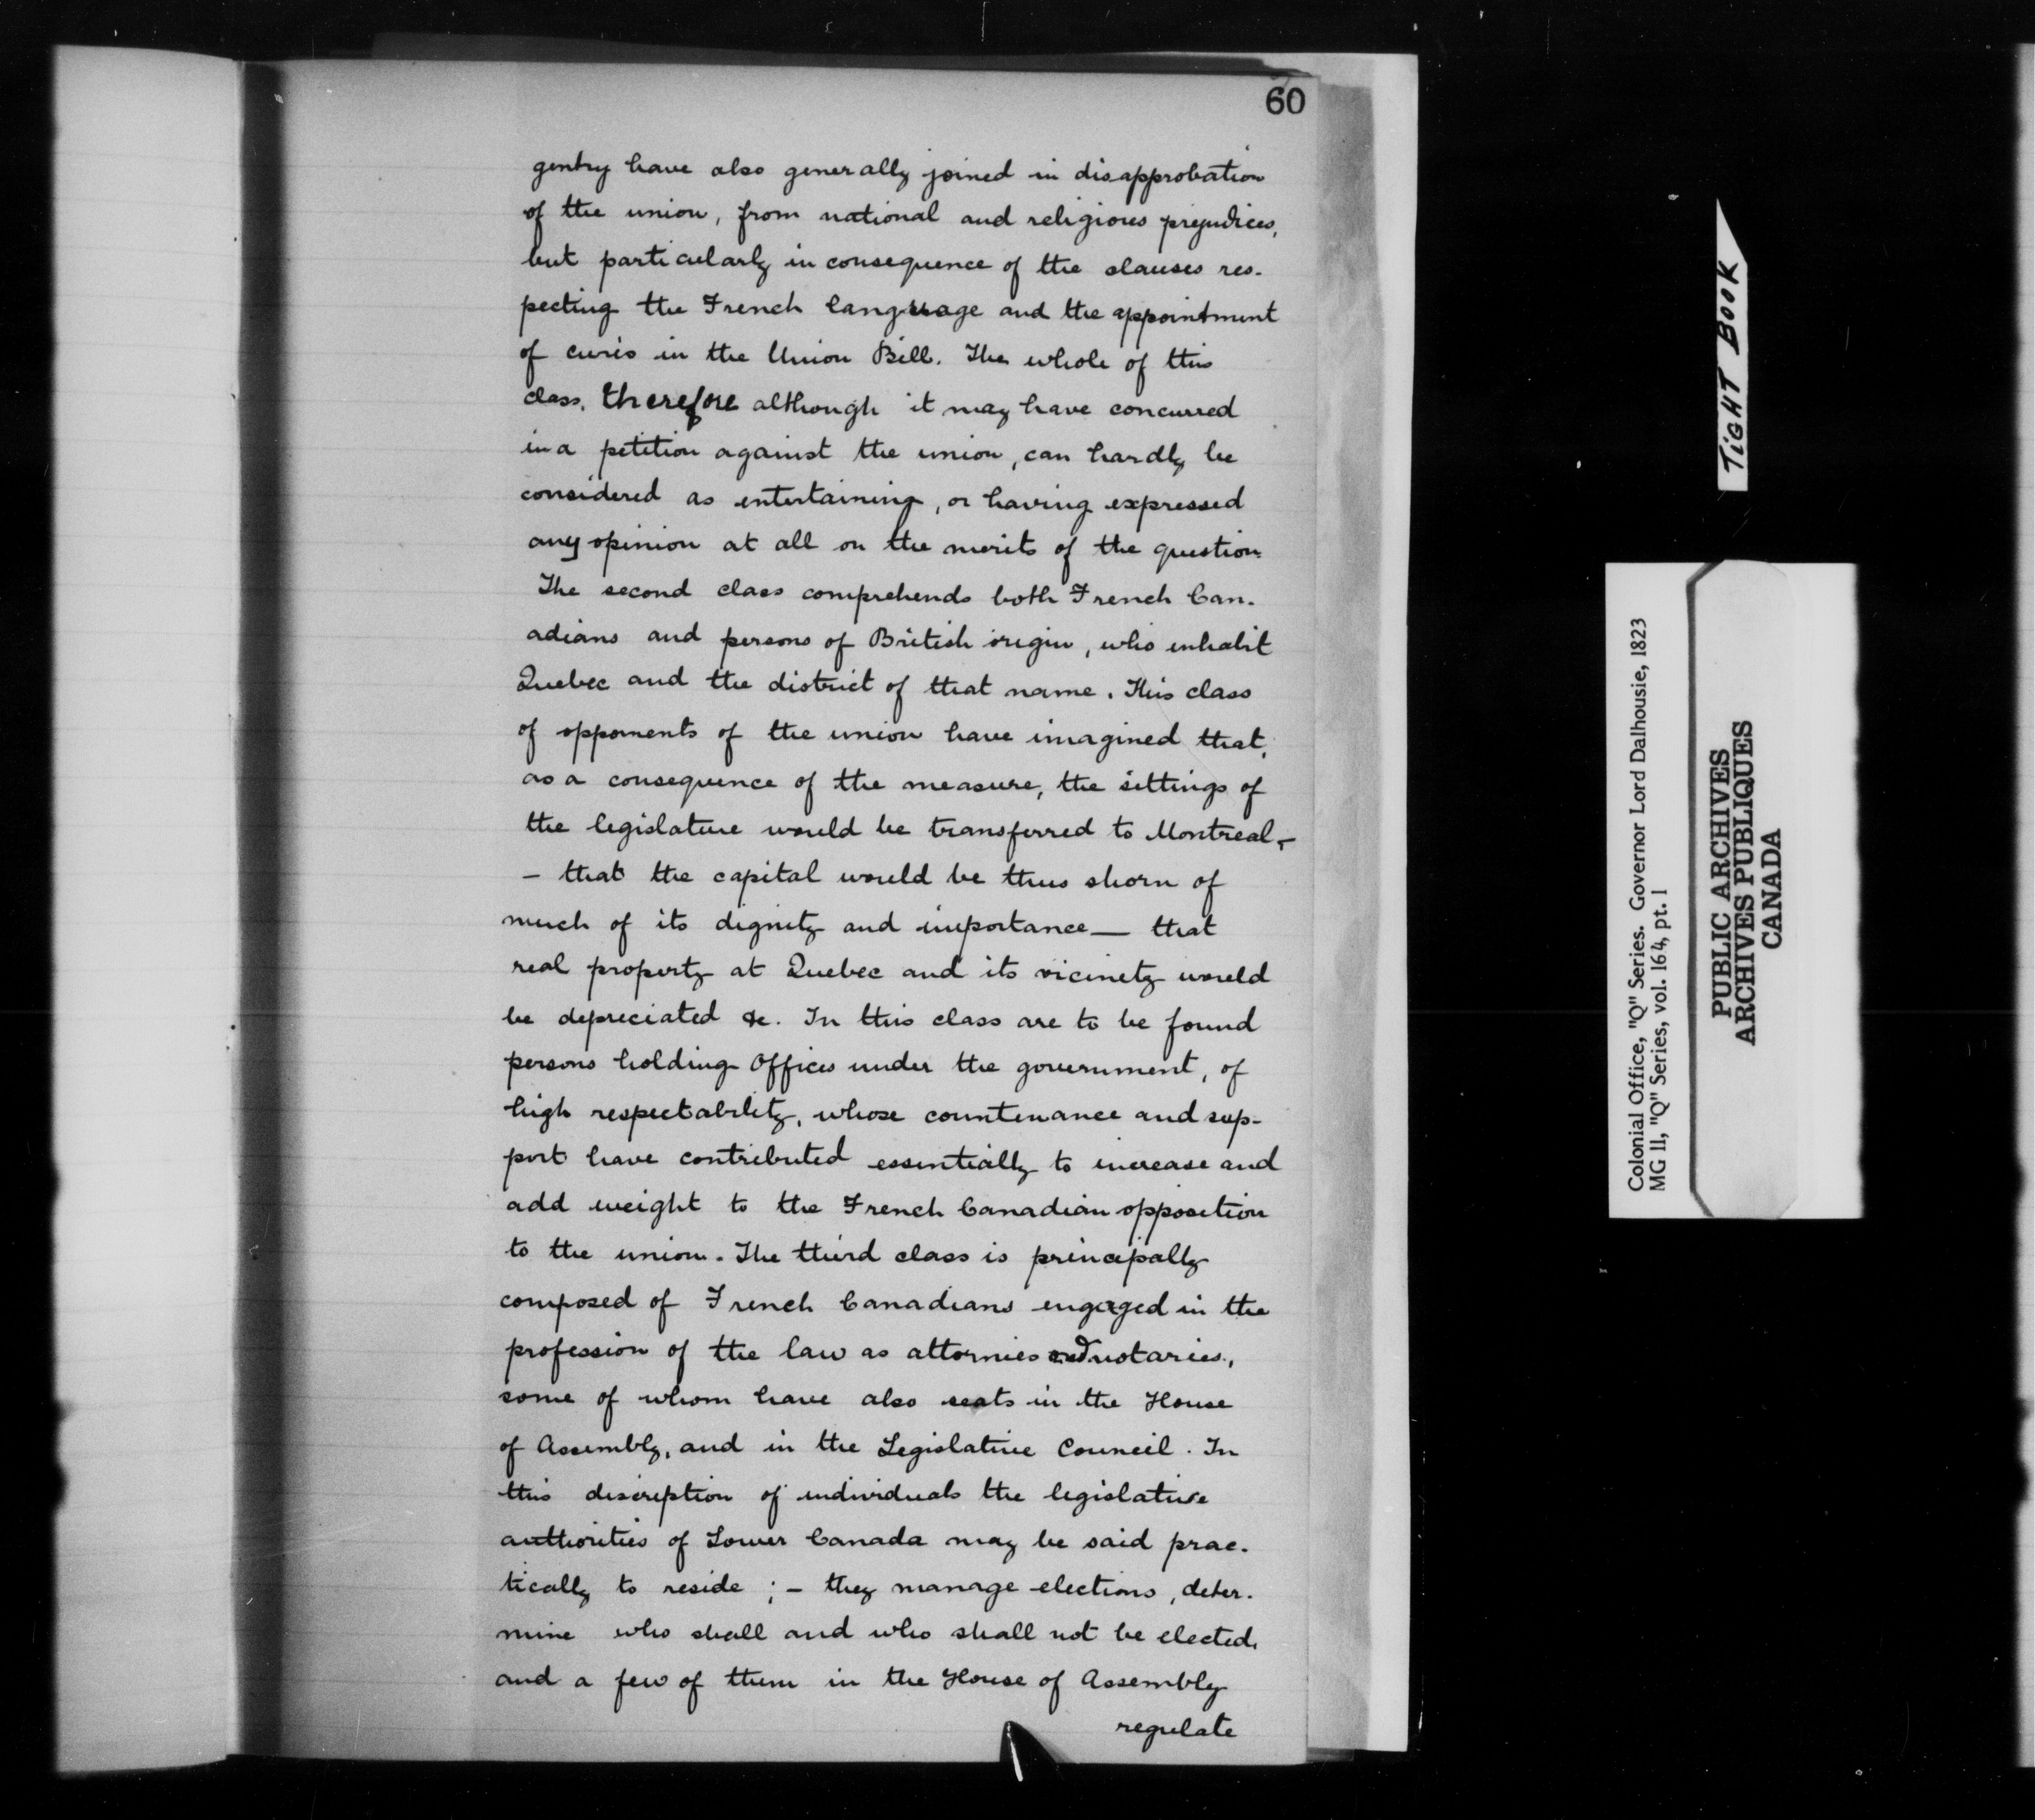 60
gentry have also generally joined in disapprobation
of the union, from national and religious prejudices,
but particularly in consequence of the clauses res-
pecting the French language and the appointment
of curés in the Union Bill. The whole of this
class, therefore although it may have concurred
in a petition against the union, can hardly be
considered as entertaining, or having expressed
any opinion at all on the merits of the question
The second class comprehends both French Can-
adians and persons of British origin, who inhabit
Quebec and the district of that name. This class
of opponents of the union have imagined that,
as a consequence of the measure, the sittings of
the legislature would be transferred to Montreal,-
- that the capital would be thus shorn of
much of its dignity and importance — that
real property at Quebec and its vicinity would
be depreciated &c. In this class are to be found
persons holding Offices under the government, of
high respectability, whose countenance and sup-
port have contributed essentially to increase and
add weight to the French Canadian opposition
to the union. The third class is principally
composed of French Canadians engaged in the
profession of the law as attornies and notaries,
some of whom have also seats in the House
of Assembly, and in the Legislative Council. In
this discription of individuals the legislative
authorities of Lower Canada may be said prac-
tically to reside ; - they manage elections, deter-
mine who shall and who shall not be elected,
and a few of them in the House of Assembly
regulate
TIGHT BOOK
Colonial Office, "Q" Series. Governor Lord Dalhousie, 1823
MG 11, "Q" Series, vol. 164, pt. 1
PUBLIC ARCHIVES
ARCHIVES PUBLIQUES
CANADA